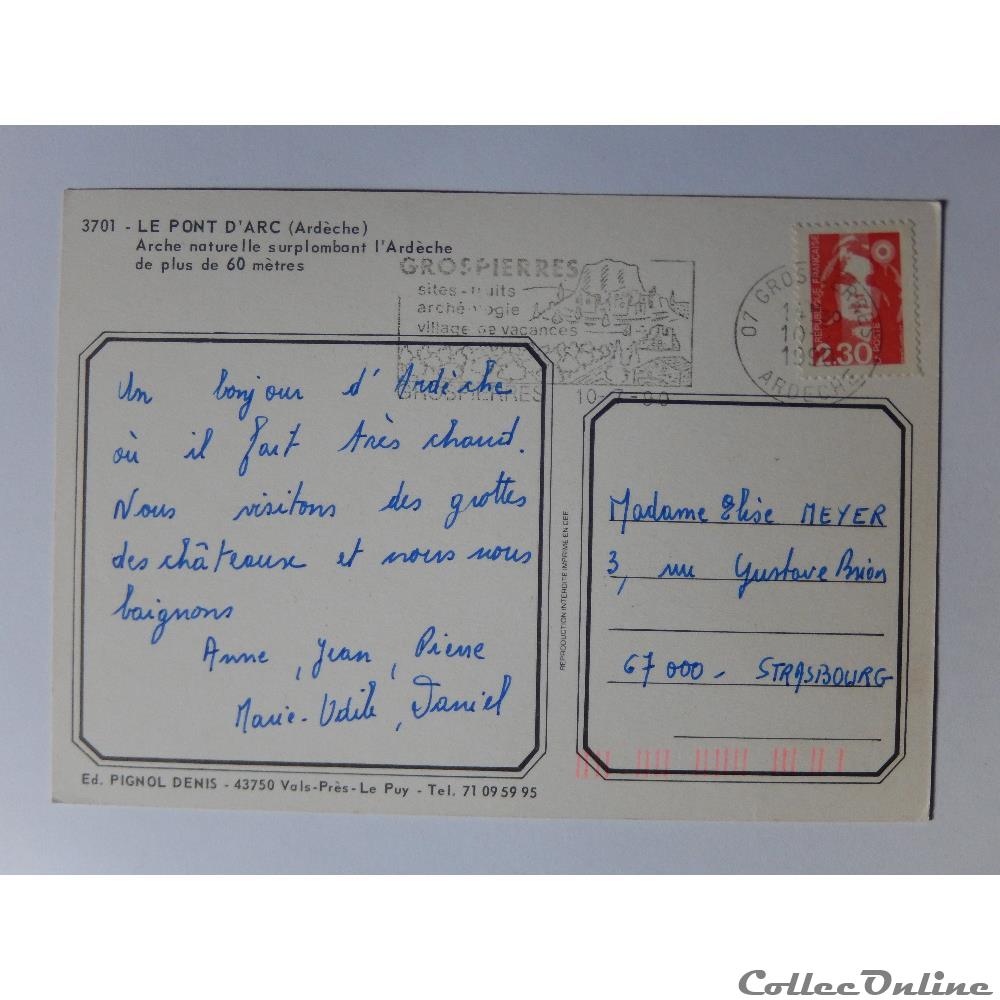 3701 - LE PONT D'ARC (Ardèche)
Arche naturelle surplombant l'Ardèche
de plus de 60 mètres
GROSPIERRES
sites - fruits
archéologie
village de vacances
GROSPIERRES 10-7-90
07 GROSPIERRES
10
ARDECHE
REPUBLIQUE FRANÇAISE
2.30
POSTE
Un bonjour d'Ardèche
où il fait très chaud.
Nous visitons des grottes
des châteaux et nous nous
baignons
Anne, Jean, Pierre
Marie-Odile, Daniel
REPRODUCTION INTERDITE IMPRIME EN CEE
Madame Elise MEYER
3, rue Gustave Brion
67 000 - STRASBOURG
Ed. PIGNOL DENIS - 43750 Vals-Près-Le Puy - Tel. 71 09 59 95
CollecOnline